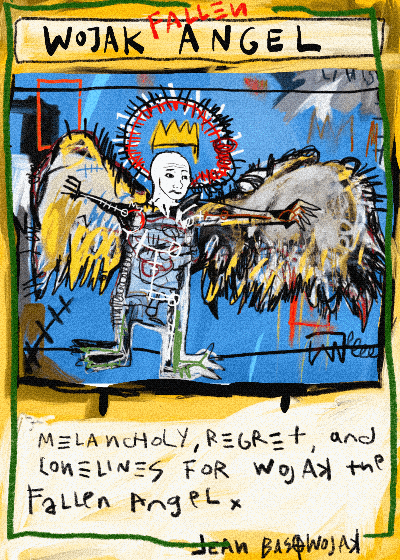 FALLEN
WOJAK ANGEL
MELANCHOLY, REGRET, and
LONELINES FOR WOJAK the
Fallen AngeL x
JEAN BASQWOJAK